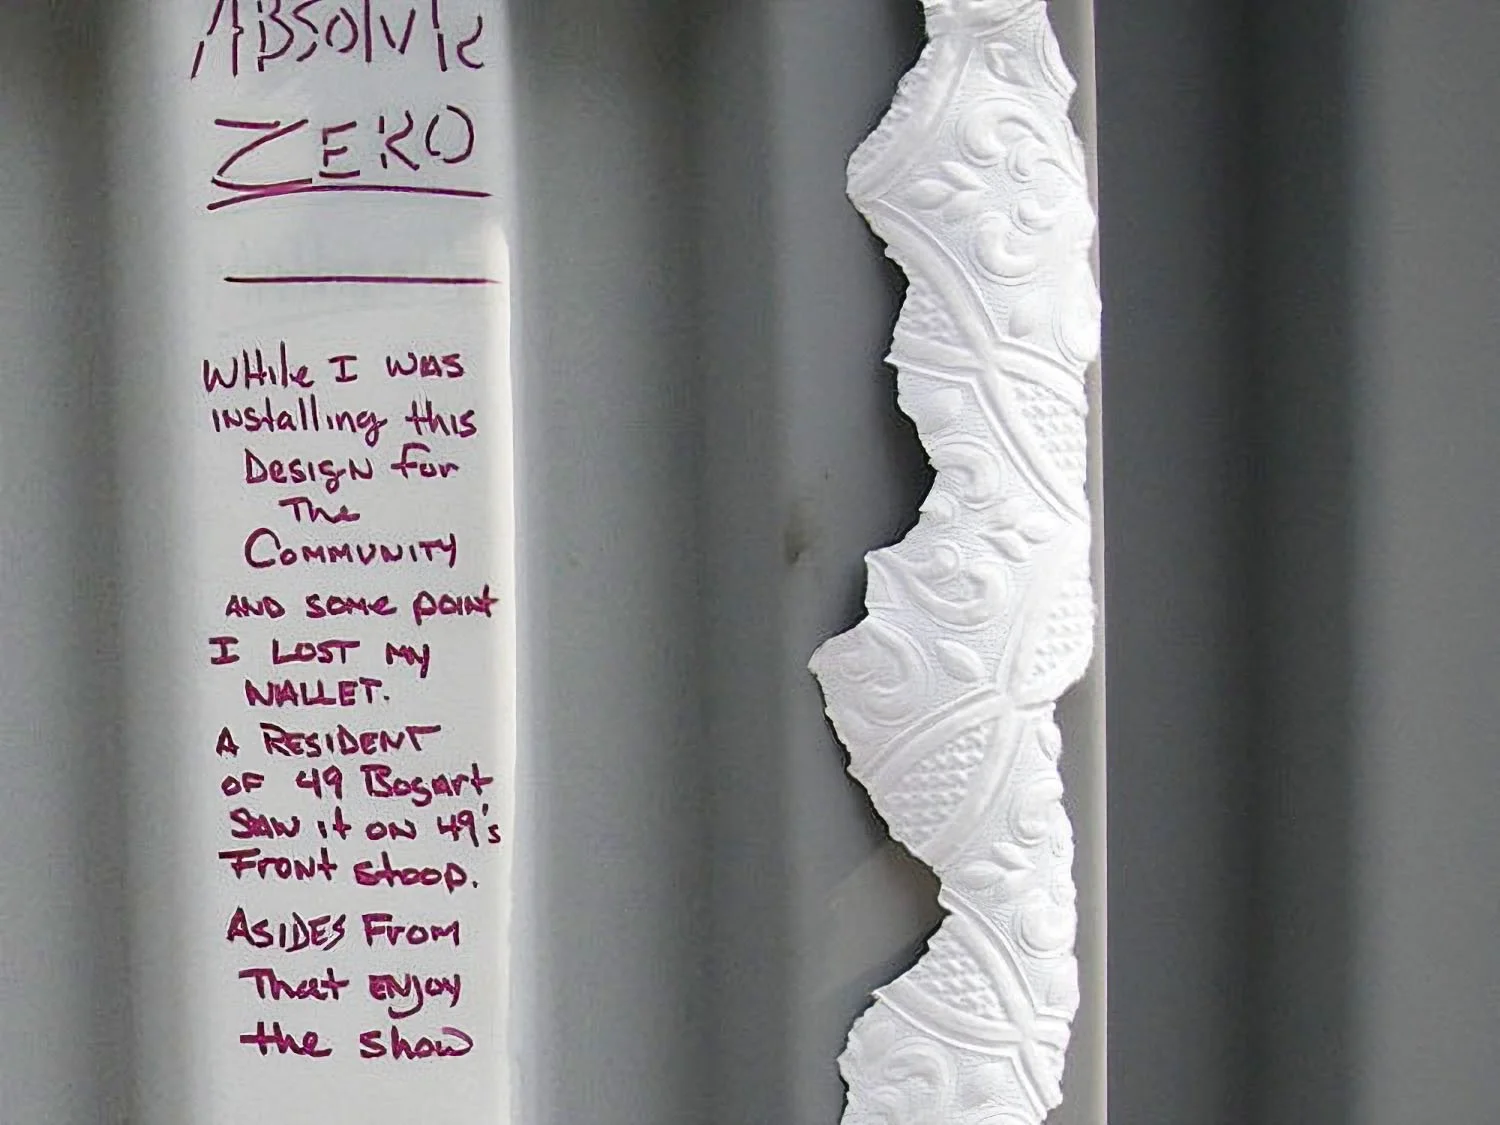 ABSOLUTE
ZERO
WHile I WAS
INStalling this
DesigN for
The
COMMUNITY
AND some point
I LOST MY
WALLET.
A RESIDENT
OF 49 Bogart
SAW it ON 49's
FroNt stoop.
ASIDES From
That ENjoy
the show